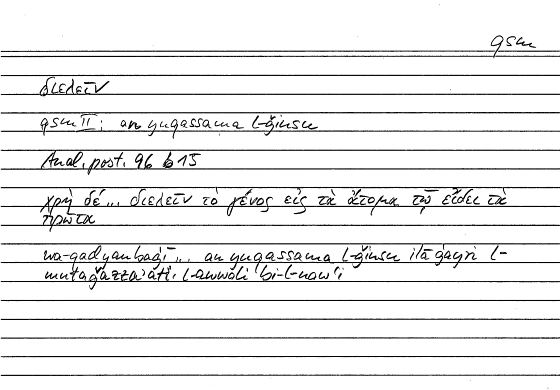 qsm
διελεῖν
qsm II: an yuqassama l-ǧinsu
Anal. post. 96 b 15
χρὴ δέ... διελεῖν τὸ γένος εἰς τὰ ἄτομα τῷ εἴδει τὰ
πρῶτα
wa-qad yanbaġī... an yuqassama l-ǧinsu ilā ġayri l-
mutaǧazzi'āti l-awwali bi-l-naw'i